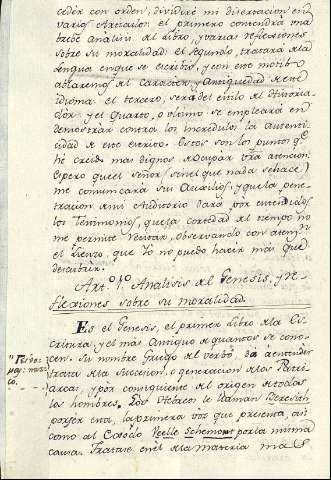 ceder con orden, dividiré mi disertacion en
varios Articulos: el primero contendrá una
breve Analisis del Libro, y varias reflexiones
sobre su moralidad: el segundo, tratará de la
Lengua en que se escribió, y con este motibo
ablaremos del Caracter, y Antiguedad de este
idioma: el tercero, será del estilo del Historia-
dor: y el quarto, o ultimo se empleará en
demostrar contra los incredulos la autenti-
cidad de este escrito. Estos son los puntos qe.
hé creido mas dignos de ocupar vra. atencion:
espero que el Señor, sin el que nada se hace,
me comunicará sus Auxilios, y que la pene-
tracion de mi Auditorio dará por entendidos
los Testimonios, que la cortedad del tiempo no
me permite
el que Yo no puedo hacer mas que
Art.º 1.º Analisis del Genesis, y re-
flexiones sobre su moralidad.
Es el Genesis, el primer Libro de la Es-
critura, y el mas Antiguo de quantos se cono-
cen. Su nombre Griego del verbo, da a entender
trata de la succesion, o generacion de los Patri-
arcas, y por consiguiente del origen de todos
los hombres. Los Hebreos le llaman Beresith
por ser esta, la primera voz que presenta, asi
como al Exodo Veelle Schemont por la misma
causa. Trátase en él de la materia mas